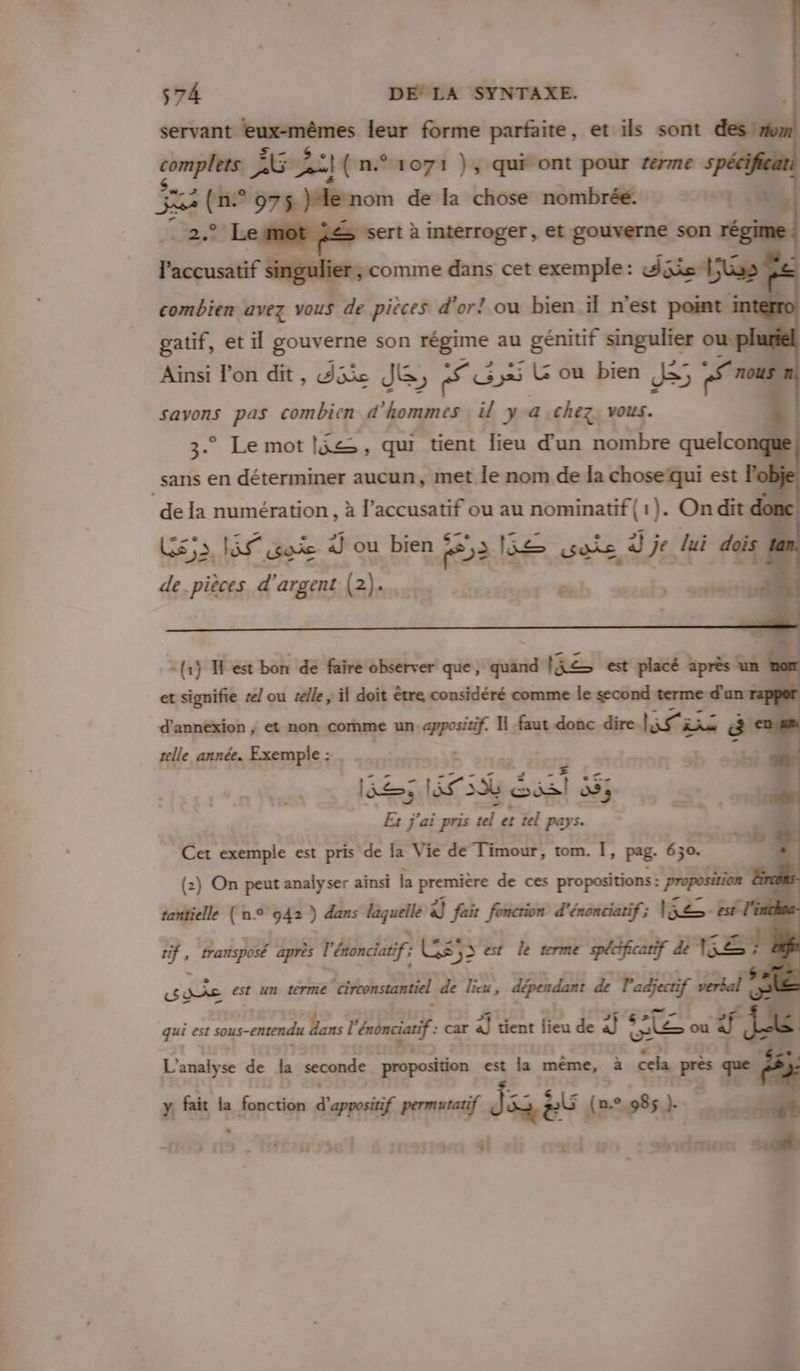 574 DE LA SYNTAXE.
servant eux-mêmes leur forme parfaite, et ils sont des nom
complets إِسْمٌ تَامٌّ (n.° 1071), qui ont pour terme spécificati
(n.° 975) le nom de la chose nombréé.
2.° Le mot كَمْ sert à interroger, et gouverne son régime
l'accusatif singulier, comme dans cet exemple: كَمْ دِينَارًا عِنْدَكَ
combien avez vous de pièces d'or! ou bien il n'est point interro
gatif, et il gouverne son régime au génitif singulier ou pluriel
Ainsi l'on dit, مَا نَعْرِفُ كَمْ رِجَالٍ عِنْدَكَ ou bien كَمْ رَجُلٍ nous n
savons pas combien d'hommes il y a chez vous.
3.° Le mot كَذَا, qui tient lieu d'un nombre quelconque
sans en déterminer aucun, met le nom de la chose qui est l'obje
de la numération, à l'accusatif ou au nominatif (1). On dit donc
لَهُ عِنْدِى كَذَا دِرْهَمًا ou bien لَهُ عِنْدِى كَذَا دِرْهَمٌ je lui dois tan
de pièces d'argent (2).
(1) Il est bon de faire observer que, quand كَذَا est placé après un nom
et signifie tel ou telle, il doit être considéré comme le second terme d'un rappor
d'annexion, et non comme un appositif. Il faut donc dire فِى سَنَةِ كَذَا en un
telle année. Exemple :
وَقَدْ أَخَذْتُ بِلَادَ كَذَا وَكَذَا
Et j'ai pris tel et tel pays.
Cet exemple est pris de la Vie de Timour, tom. I, pag. 630.
(2) On peut analyser ainsi la première de ces propositions: proposition circons-
tantielle (n.° 942) dans laquelle لَهُ fait fonction d'énonciatif; كَذَا est l'inchoa-
tif, transposé après l'énonciatif; دِرْهَمًا est le terme spécificatif de كَذَا; enfin
عِنْدِى est un terme circonstantiel de lieu, dépendant de l'adjectif verbal كَائِنٌ
qui est sous-entendu dans l'énonciatif: car لَهُ tient lieu de كَائِنٌ لَهُ ou حَاصِلٌ لَهُ
L'analyse de la seconde proposition est la même, à cela près que دِرْهَمٌ
y fait la fonction d'appositif permutatif تَابِعٌ بَدَلٌ (n.° 985).